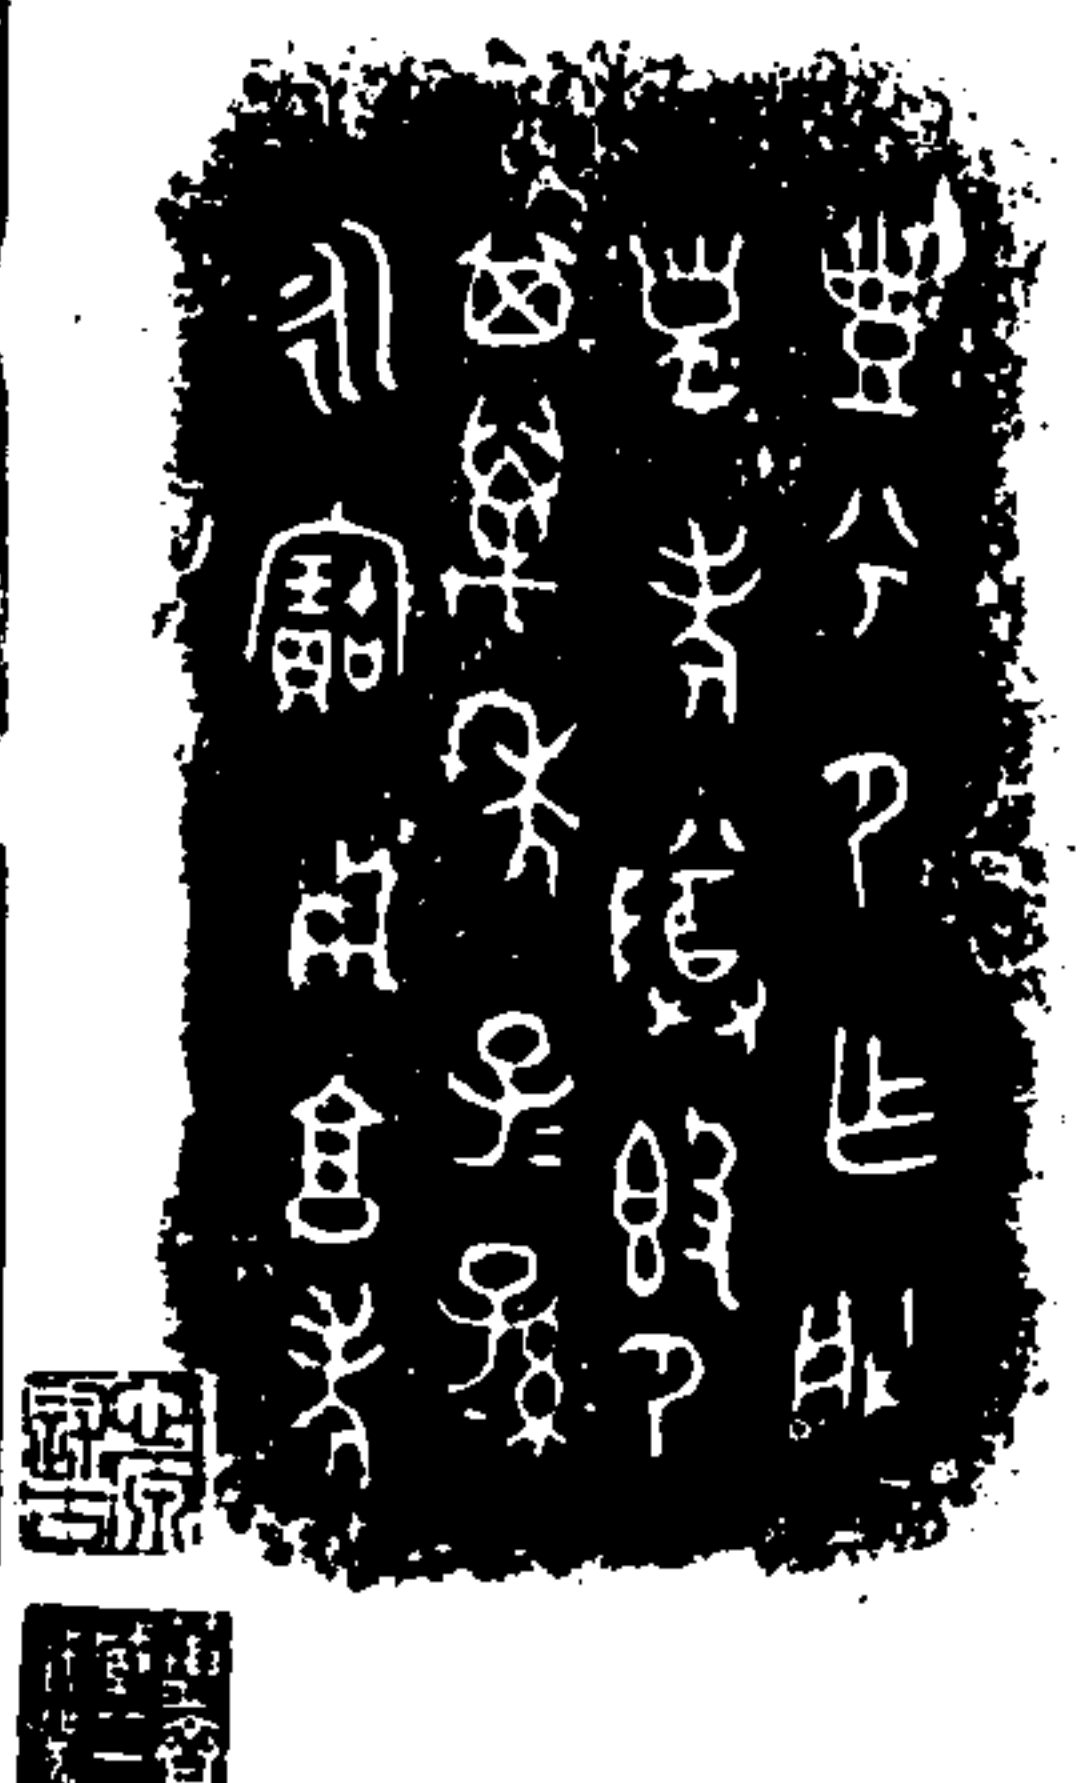 豐兮尸乍朕
皇考尊𣪘尸
其萬年子=孫
永寶用享考